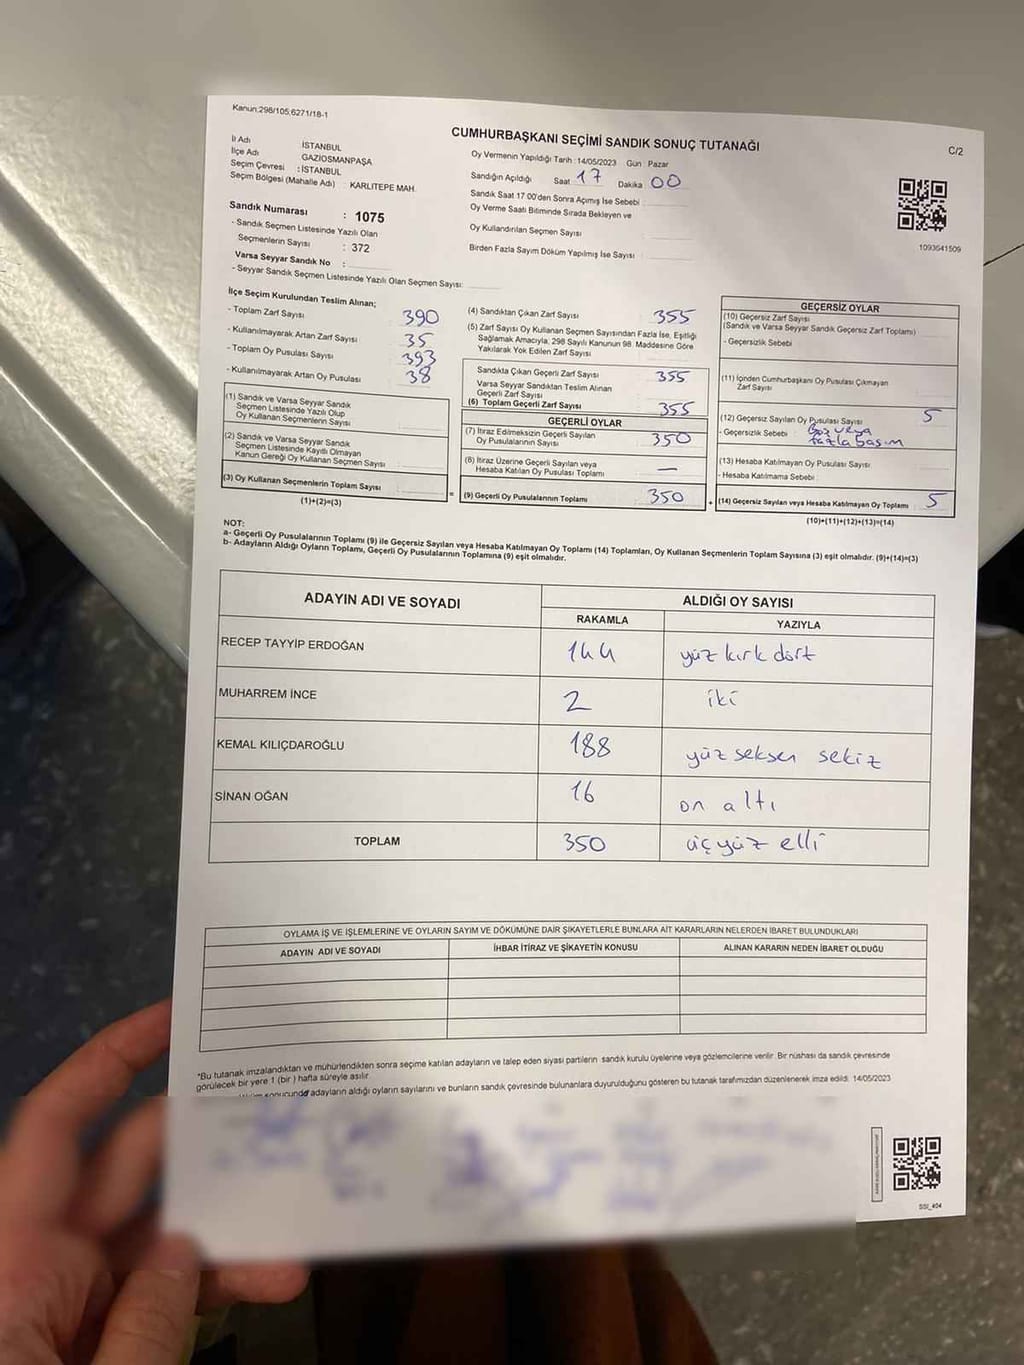 Kanun:298/105;6271/18-1
CUMHURBAŞKANI SEÇİMİ SANDIK SONUÇ TUTANAĞI
C/2
İl Adı İSTANBUL
İlçe Adı GAZİOSMANPAŞA
Seçim Çevresi : İSTANBUL
Seçim Bölgesi (Mahalle Adı) : KARLITEPE MAH.
Sandık Numarası : 1075
- Sandık Seçmen Listesinde Yazılı Olan
Seçmenlerin Sayısı : 372
Varsa Seyyar Sandık No :
- Seyyar Sandık Seçmen Listesinde Yazılı Olan Seçmen Sayısı:
Oy Vermenin Yapıldığı Tarih : 14/05/2023 Gün : Pazar
Sandığın Açıldığı Saat 17 Dakika 00
Sandık Saat 17 00'den Sonra Açımış İse Sebebi
Oy Verme Saati Bitiminde Sırada Bekleyen ve
Oy Kullandırılan Seçmen Sayısı
Birden Fazla Sayım Döküm Yapılmış İse Sayısı
1093641509
İlçe Seçim Kurulundan Teslim Alınan;
- Toplam Zarf Sayısı 390
- Kullanılmayarak Artan Zarf Sayısı 35
- Toplam Oy Pusulası Sayısı 393
- Kullanılmayarak Artan Oy Pusulası 38
(1) Sandık ve Varsa Seyyar Sandık
Seçmen Listesinde Yazılı Olup
Oy Kullanan Seçmenlerin Sayısı
(2) Sandık ve Varsa Seyyar Sandık
Seçmen Listesinde Kayıtlı Olmayan
Kanun Gereği Oy Kullanan Seçmen Sayısı
(3) Oy Kullanan Seçmenlerin Toplam Sayısı
(1)+(2)=(3)
(4) Sandıktan Çıkan Zarf Sayısı 355
(5) Zarf Sayısı Oy Kullanan Seçmen Sayısından Fazla İse, Eşitliği
Sağlamak Amacıyla, 298 Sayılı Kanunun 98. Maddesine Göre
Yakılarak Yok Edilen Zarf Sayısı
Sandıkta Çıkan Geçerli Zarf Sayısı 355
Varsa Seyyar Sandıktan Teslim Alınan
Geçerli Zarf Sayısı
(6) Toplam Geçerli Zarf Sayısı 355
GEÇERLİ OYLAR
(7) İtiraz Edilmeksizin Geçerli Sayılan
Oy Pusulalarının Sayısı 350
(8) İtiraz Üzerine Geçerli Sayılan veya
Hesaba Katılan Oy Pusulası Toplamı —
= (9) Geçerli Oy Pusulalarının Toplamı 350
GEÇERSİZ OYLAR
(10) Geçersiz Zarf Sayısı
(Sandık ve Varsa Seyyar Sandık Geçersiz Zarf Toplamı)
- Geçersizlik Sebebi
(11) İçinden Cumhurbaşkanı Oy Pusulası Çıkmayan
Zarf Sayısı
(12) Geçersiz Sayılan Oy Pusulası Sayısı 5
- Geçersizlik Sebebi : Boş veya
fazla basım
(13) Hesaba Katılmayan Oy Pusulası Sayısı
- Hesaba Katılmama Sebebi :
+ (14) Geçersiz Sayılan veya Hesaba Katılmayan Oy Toplamı 5
(10)+(11)+(12)+(13)=(14)
NOT:
a- Geçerli Oy Pusulalarının Toplamı (9) ile Geçersiz Sayılan veya Hesaba Katılmayan Oy Toplamı (14) Toplamları, Oy Kullanan Seçmenlerin Toplam Sayısına (3) eşit olmalıdır. (9)+(14)=(3)
b- Adayların Aldığı Oyların Toplamı, Geçerli Oy Pusulalarının Toplamına (9) eşit olmalıdır.
ADAYIN ADI VE SOYADI
ALDIĞI OY SAYISI
RAKAMLA YAZIYLA
RECEP TAYYİP ERDOĞAN 144 yüz kırk dört
MUHARREM İNCE 2 iki
KEMAL KILIÇDAROĞLU 188 yüz seksen sekiz
SİNAN OĞAN 16 on altı
TOPLAM 350 üçyüz elli
OYLAMA İŞ VE İŞLEMLERİNE VE OYLARIN SAYIM VE DÖKÜMÜNE DAİR ŞİKAYETLERLE BUNLARA AİT KARARLARIN NELERDEN İBARET BULUNDUKLARI
ADAYIN ADI VE SOYADI İHBAR İTİRAZ VE ŞİKAYETİN KONUSU ALINAN KARARIN NEDEN İBARET OLDUĞU
*Bu tutanak imzalandıktan ve mühürlendikten sonra seçime katılan adayların ve talep eden siyasi partilerin sandık kurulu üyelerine veya gözlemcilerine verilir. Bir nüshası da sandık çevresinde
görülecek bir yere 1 (bir) hafta süreyle asılır.
adayların aldığı oyların sayılarını ve bunların sandık çevresinde bulunanlara duyurulduğunu gösteren bu tutanak tarafımızdan düzenlenerek imza edildi. 14/05/2023
SSI_404